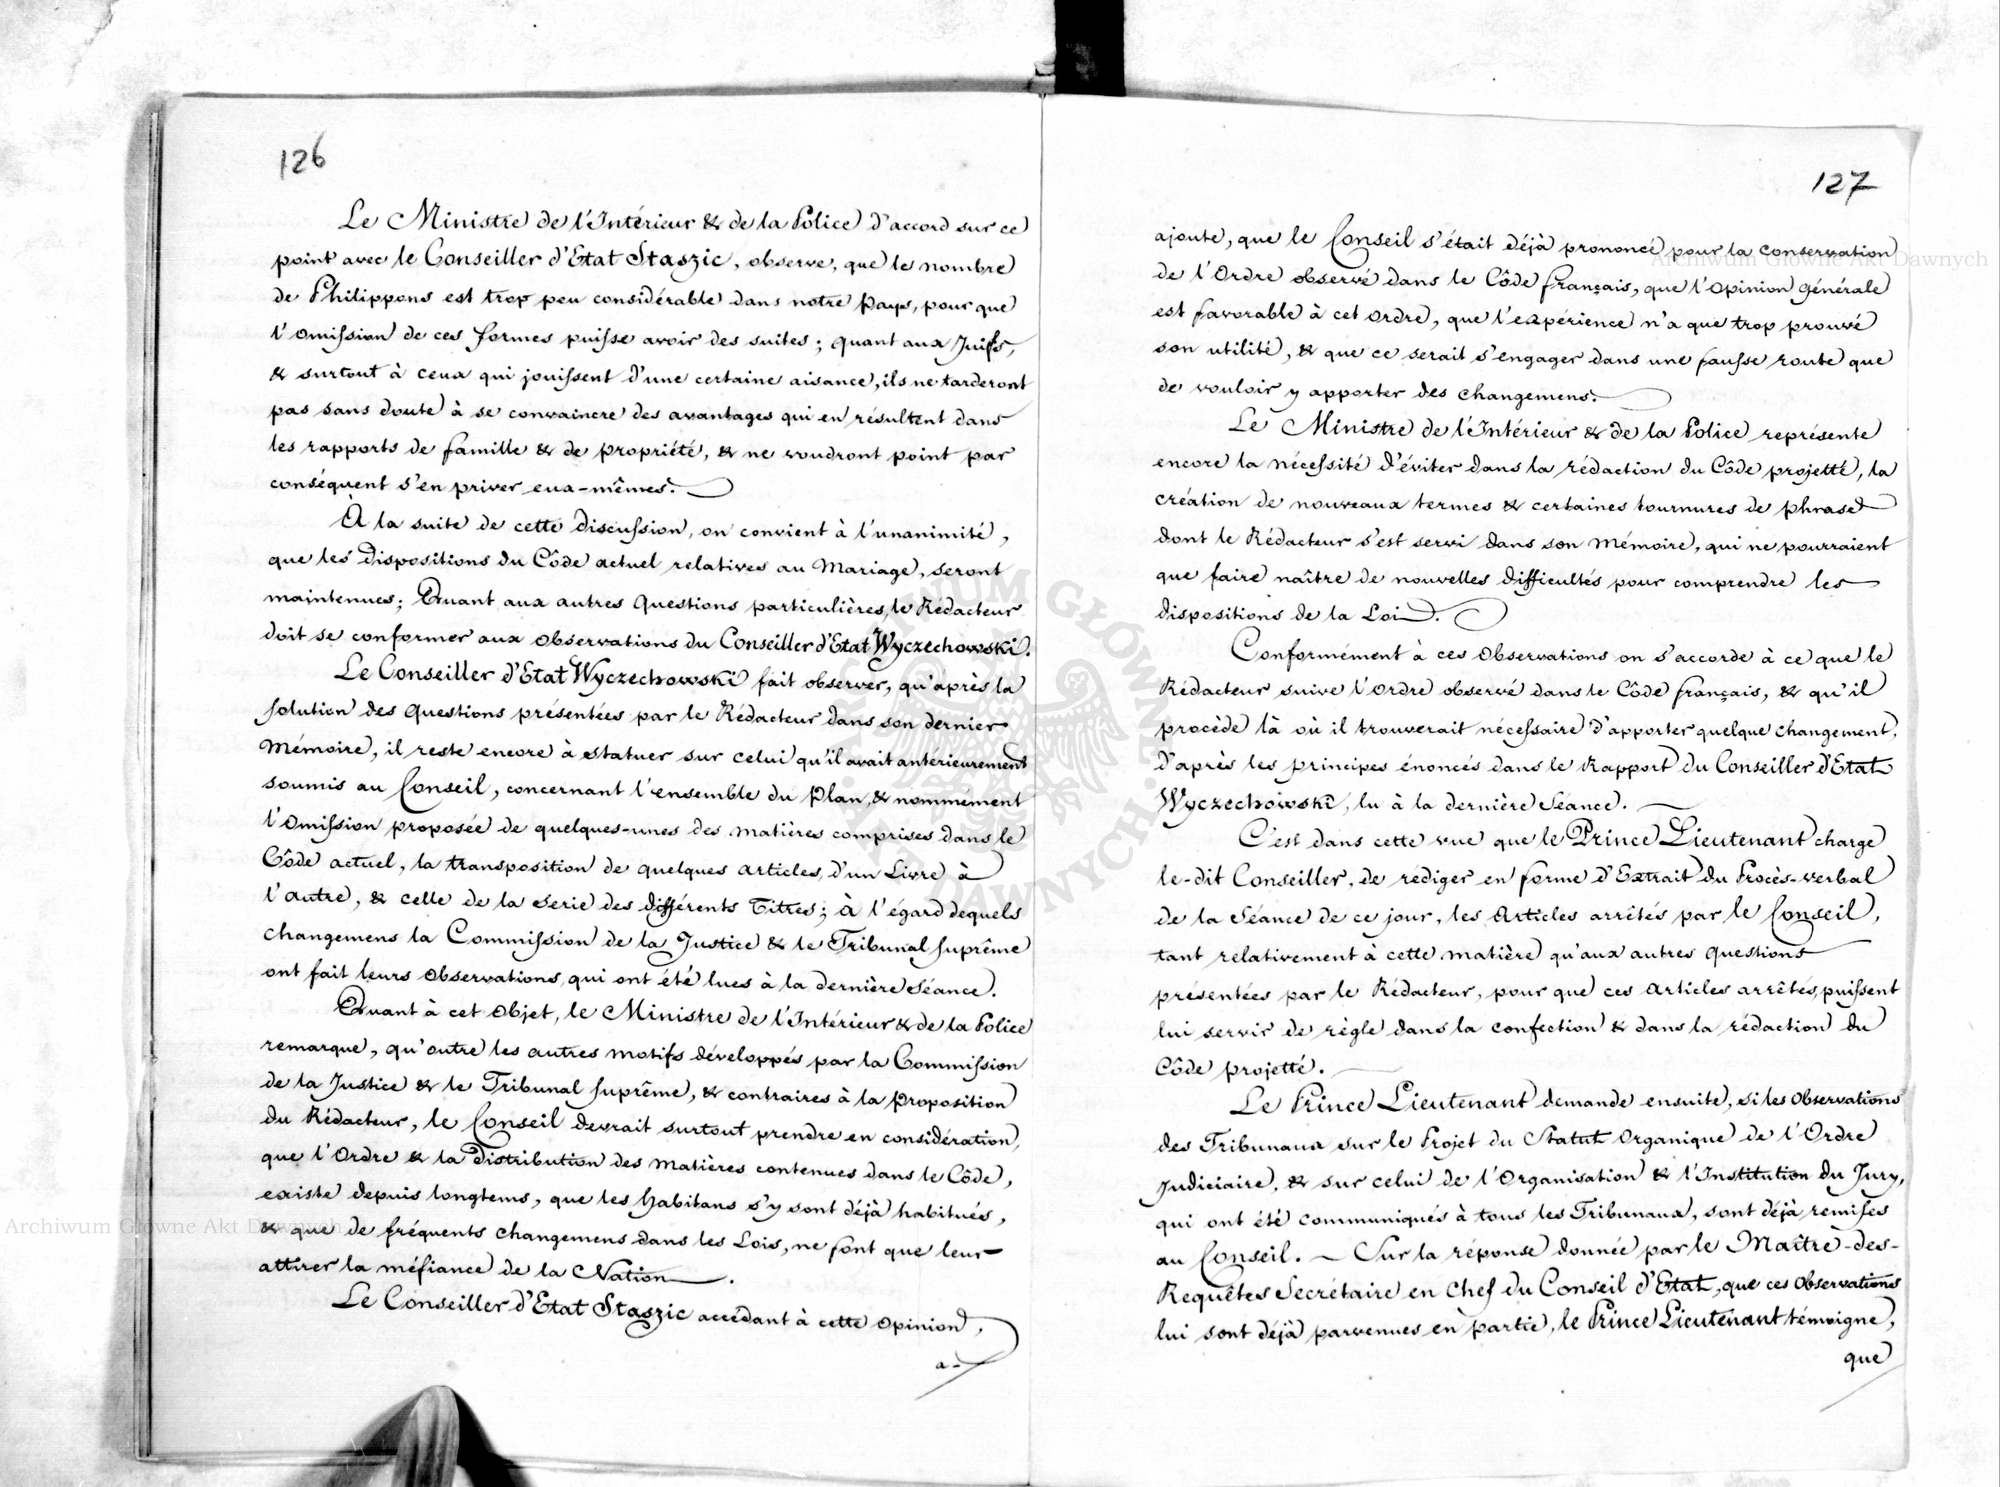 126
Le Ministre de l'Intérieur & de la Police d'accord sur ce
point avec le Conseiller d'Etat Staszic, observe, que le nombre
de Philippons est trop peu considérable dans notre Pays, pour que
l'Omission de ces formes puisse avoir des suites; quant aux Juifs,
& surtout à ceux qui jouissent d'une certaine aisance, ils ne tarderont
pas sans doute à se convaincre des avantages qui en résultent dans
les rapports de famille & de propriété, & ne voudront point par
conséquent s'en priver eux-mêmes.
À la suite de cette Discussion, on convient à l'unanimité,
que les Dispositions du Côde actuel relatives au Mariage, seront
maintenues; Quant aux autres Questions particulières, le Rédacteur
doit se conformer aux Observations du Conseiller d'Etat Wyczechowski.
Le Conseiller d'Etat Wyczechowski fait observer, qu'après la
Solution des Questions présentées par le Rédacteur dans son dernier
Mémoire, il reste encore à statuer sur celui qu'il avait antérieurement
soumis au Conseil, concernant l'ensemble du Plan, & nommément
l'Omission proposée de quelques-unes des matières comprises dans le
Côde actuel, la transposition de quelques articles, d'un Livre à
l'autre, & celle de la serie des différents Titres; à l'égard dequels
changemens la Commission de la Justice & le Tribunal Suprême
ont fait leurs Observations, qui ont été lues à la dernière Séance.
Quant à cet Objet, le Ministre de l'Intérieur & de la Police
remarque, qu'outre les autres motifs développés par la Commission
de la Justice & le Tribunal Suprême, & contraires à la Proposition
du Rédacteur, le Conseil devrait surtout prendre en considération,
que l'Ordre & la Distribution des matières contenues dans le Côde,
existe depuis longtems, que les Habitans s'y sont déjà habitués,
& que de fréquents changemens dans les Lois, ne font que leur
attirer la méfiance de la Nation.
Le Conseiller d'Etat Staszic accédant à cette Opinion,
a-
127
ajoute, que le Conseil s'était déjà prononcé pour la conservation
de l'Ordre observé dans le Côde français, que l'Opinion générale
est favorable à cet Ordre, que l'expérience n'a que trop prouvé
son utilité, & que ce serait s'engager dans une fausse route que
de vouloir y apporter des changemens.
Le Ministre de l'Intérieur & de la Police représente
encore la nécessité d'éviter dans la rédaction du Côde projetté, la
création de nouveaux termes & certaines tournures de phrase
dont le Rédacteur s'est servi dans son Mémoire, qui ne pourraient
que faire naître de nouvelles difficultés pour comprendre les
dispositions de la Loi.
Conformément à ces Observations on s'accorde à ce que le
Rédacteur suive l'Ordre observé dans le Côde français, & qu'il
procède là où il trouverait nécessaire d'apporter quelque changement,
d'après les principes énoncés dans le Rapport du Conseiller d'Etat
Wyczechowski, lu à la dernière Séance.
C'est dans cette vue que le Prince Lieutenant charge
le-dit Conseiller, de rédiger en forme d'Extrait du Procès-verbal
de la Séance de ce jour, les Articles arrêtés par le Conseil,
tant relativement à cette matière qu'aux autres Questions
présentées par le Rédacteur, pour que ces Articles arrêtés, puissent
lui servir de règle dans la confection & dans la rédaction du
Côde projetté.
Le Prince Lieutenant demande ensuite, si les Observations
des Tribunaux sur le Projet du Statut Organique de l'Ordre
Judiciaire, & sur celui de l'Organisation & l'Institution du Jury,
qui ont été communiqués à tous les Tribunaux, sont déjà remises
au Conseil. — Sur la réponse donnée par le Maître-des-
Requêtes Secrétaire en Chef du Conseil d'Etat, que ces Observations
lui sont déjà parvenues en partie, le Prince Lieutenant témoigne,
que
Archiwum Główne Akt Dawnych
Archiwum Główne Akt Dawnych
ARCHIWUM GŁÓWNE AKT DAWNYCH